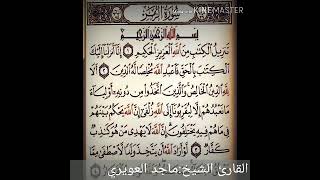 KINEMASTER
سُورَةُ الزُّمَرِ
بِسْمِ اللَّهِ الرَّحْمَٰنِ الرَّحِيمِ
تَنزِيلُ الْكِتَٰبِ مِنَ اللَّهِ الْعَزِيزِ الْحَكِيمِ ١ إِنَّا أَنزَلْنَا إِلَيْكَ
الْكِتَٰبَ بِالْحَقِّ فَاعْبُدِ اللَّهَ مُخْلِصًا لَّهُ الدِّينَ ٢ أَلَا
لِلَّهِ الدِّينُ الْخَالِصُ وَالَّذِينَ اتَّخَذُوا مِن دُونِهِ أَوْلِيَاءَ
مَا نَعْبُدُهُمْ إِلَّا لِيُقَرِّبُونَا إِلَى اللَّهِ زُلْفَىٰ إِنَّ اللَّهَ يَحْكُمُ بَيْنَهُمْ
فِي مَا هُمْ فِيهِ يَخْتَلِفُونَ إِنَّ اللَّهَ لَا يَهْدِي مَنْ هُوَ كَٰذِبٌ
كَفَّارٌ ٣ لَّوْ أَرَادَ اللَّهُ أَن يَتَّخِذَ وَلَدًا لَّاصْطَفَىٰ مِمَّا
القارئ الشيخ:ماجد العويري